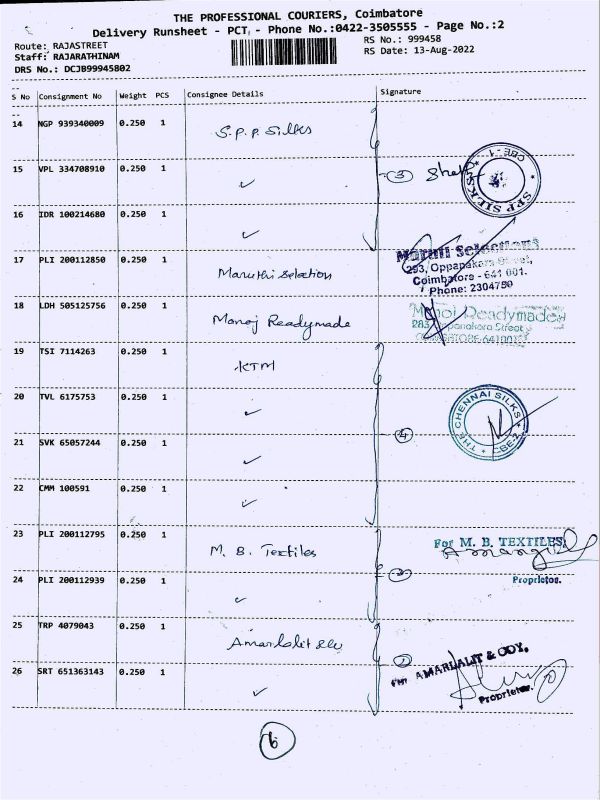 THE PROFESSIONAL COURIERS, Coimbatore
Delivery Runsheet - PCT - Phone No.:0422-3505555 - Page No.:2
Route: RAJASTREET
RS No.: 999458
Staff: RAJARATHINAM
RS Date: 13-Aug-2022
DRS No.: DCJB99945802
S No Consignment No Weight PCS Consignee Details Signature
14 NGP 939340009 0.250 1 S.P.P. Silks
15 VPL 334708910 0.250 1 ✓ 3
SPP SILKS CBE-1
16 IDR 100214680 0.250 1 ✓
17 PLI 200112850 0.250 1 Maruthi Selection
Maruti Selections
293, Oppanakara Street,
Coimbatore - 641 001.
Phone: 2304750
18 LDH 505125756 0.250 1 Manoj Readymade
Manoj Readymades
283, Oppanakara Street
COIMBATORE-641001
19 TSI 7114263 0.250 1 KTM
20 TVL 6175753 0.250 1 ✓
THE CHENNAI SILKS CBE-2
21 SVK 65057244 0.250 1 ✓ 4
22 CMM 100591 0.250 1 ✓
23 PLI 200112795 0.250 1 M. B. Textiles
For M. B. TEXTILES,
24 PLI 200112939 0.250 1 ✓ 2
Proprietor.
25 TRP 4079043 0.250 1 Amarlalit
For AMARLALIT & COY.
26 SRT 651363143 0.250 1 ✓
Proprietor.
6